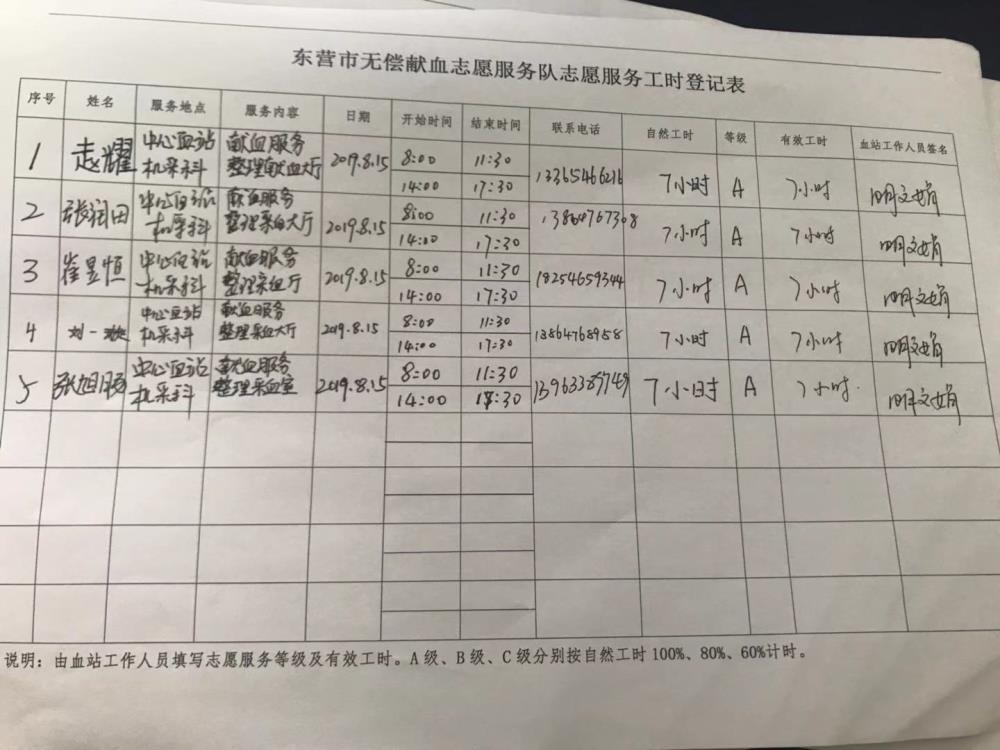 东营市无偿献血志愿服务队志愿服务工时登记表
序号 姓名 服务地点 服务内容 日期 开始时间 结束时间 联系电话 自然工时 等级 有效工时 血站工作人员签名
1 赵耀 中心血站 献血服务 2019.8.15 8:00 11:30 13365466216 7小时 A 7小时
机采科 整理献血大厅 14:00 17:30
2 张润田 中心血站 献血服务 2019.8.15 8:00 11:30 13864767308 7小时 A 7小时
机采科 整理采血大厅 14:00 17:30
3 崔昱恒 中心血站 献血服务 2019.8.15 8:00 11:30 18254659344 7小时 A 7小时
机采科 整理采血厅 14:00 17:30
4 刘一 中心血站 献血服务 2019.8.15 8:00 11:30 13864768958 7小时 A 7小时
机采科 整理采血大厅 14:00 17:30
5 张旭阳 中心血站 献血服务 2019.8.15 8:00 11:30 13963389749 7小时 A 7小时
机采科 整理采血室 14:00 17:30
说明：由血站工作人员填写志愿服务等级及有效工时。A级、B级、C级分别按自然工时100%、80%、60%计时。